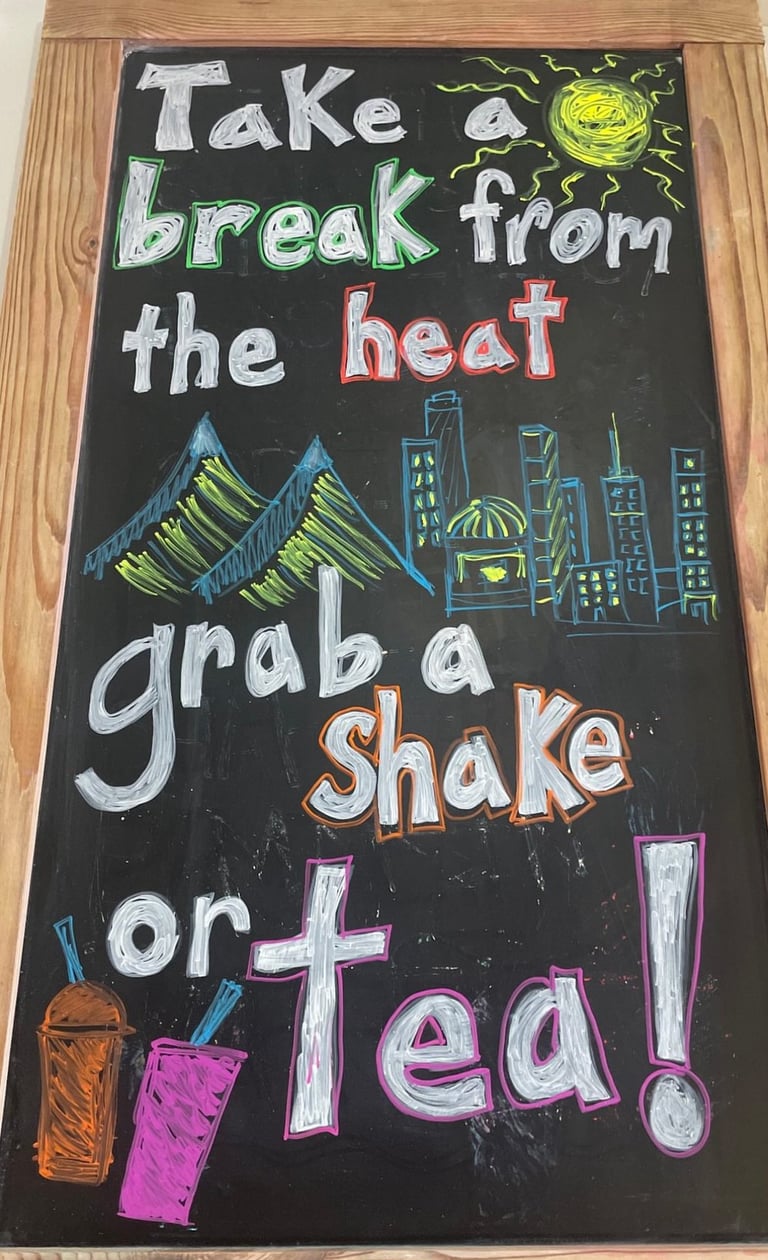 Take a
break from
the heat
grab a
shake
or tea!